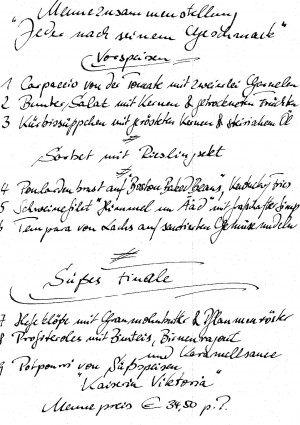 "Menuezusammenstellung
"Jeder nach seinem Geschmack"
Vorspeisen
1 Carpaccio von der Tomate mit zweierlei Garnelen
2 Bunter Salat mit Kernen & getrockneten Früchten
3 Kürbissüppchen mit gerösteten Kernen & steirischem Öl
#
Sorbet mit Rieslingsekt
#
4 Poulardenbrust auf "Boston Baked Beans", Kentucky Fries
5 Schweinefilet "Himmel un Ääd" mit
6 Tempura von Lachs auf sautierten Gemüsenudeln
#
Süßes Finale
7 Hefeklöße mit & Pflaumenröster
8 Profiteroles mit Birnenragout
und Karamellsauce
9 Potpourri von Süßspeisen
"Kaiserin Viktoria"
Menuepreis € 34,50 p.P.